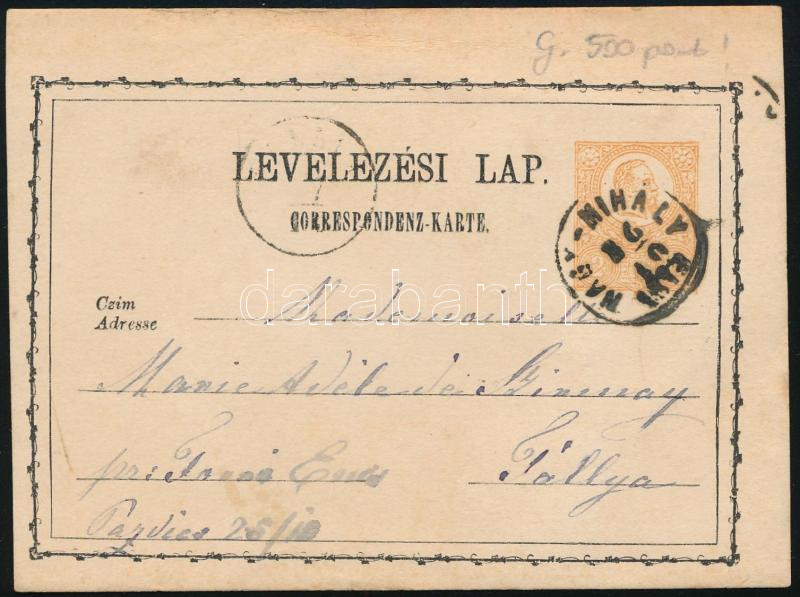 G. 500 pont!
LEVELEZÉSI LAP.
CORRESPONDENZ-KARTE.
NAGY-MIHÁLY
Czim
Adresse
Mademoiselle
Marie Adéle de Szirmay
pr: Forró Encs Tállya
25/10
darabanth